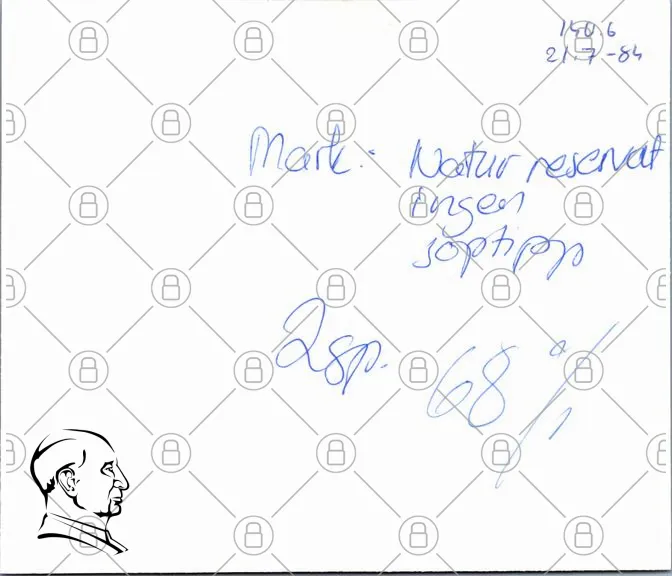 140.6
21.7-84
Mark: Naturreservat
ingen
soptipp
2sp. 68 %